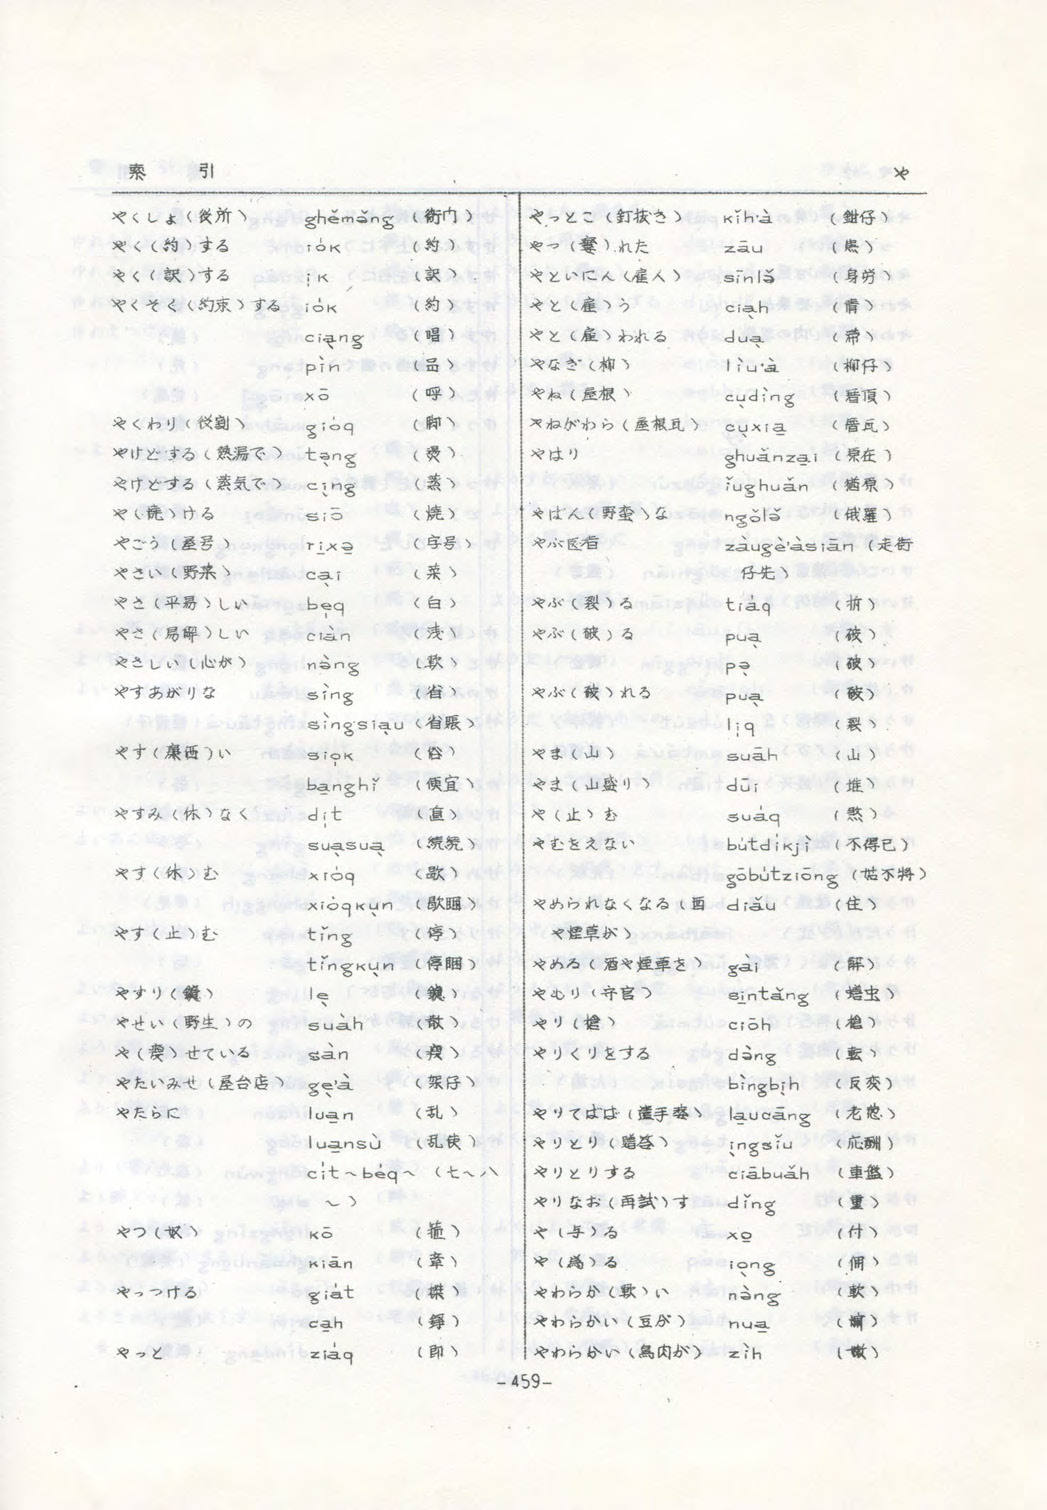 索 引 や
やくしょ(役所) ghěmǎng (衙門)
やく(約)する iók (約)
やく(訳)する ı̍k (訳)
やくそく(約束)する iók (約)
ciạng (唱)
pìn (品)
xō (呼)
やくわり(役割) gióq (脚)
やけどする(熱湯で) tạng (燙)
やけどする(蒸気で) cịng (蒸)
や(焼)ける siō (焼)
やごう(屋号) rı̱xə (字号)
やさい(野菜) cại (菜)
やさ(平易)しい beq (白)
やさ(易解)しい ciàn (浅)
やさしい(心が) nàng (軟)
やすあがりな sìng (省)
sìng'siạu (省賬)
やす(廉価)い siọk (俗)
ba̱nghǐ (便宜)
やすみ(休)なく dı̍t (直)
suạsuạ (続続)
やす(休)む xióq (歇)
xióqkụn (歇睏)
やす(止)む tǐng (停)
tǐngkụn (停睏)
やすり(鑢) lẹ (鑢)
やせい(野生)の suàh (散)
や(瘦)せている sàn (瘦)
やたいみせ(屋台店) gẹ'à (架仔)
やたらに lua̱n (乱)
lua̱nsù (乱使)
cít~béq~ (七~八
~)
やつ(奴) kō (箍)
kiān (韋)
やっつける giát (撅)
ca̱h
やっと ziáq (即)
やっとこ(釘抜き) kǐh'à (鉗仔)
やつ(窶)れた zāu
やといにん(雇人) sīnlə̌ (身労)
やと(雇)う ciạh (倩)
やと(雇)われる duạ (帶)
やなぎ(柳) lìu'à (柳仔)
やね(屋根) cụdìng (厝頂)
やねがわら(屋根瓦) cụxia̱ (厝瓦)
やはり ghuǎnza̱i (原在)
ǐughuǎn (猶原)
やばん(野蛮)な ngǒlə̌ (俄羅)
やぶ医者 zàugē'àsiān (走街
仔先)
やぶ(裂)る tiáq (拆)
やぶ(破)る puạ (破)
pə̣ (破)
やぶ(破)れる puạ (破)
lı̍q (裂)
やま(山) suāh (山)
やま(山盛り) dūi (堆)
や(止)む suáq (煞)
やむをえない bútdíkjì (不得已)
gōbútziōng (姑不将)
やめられなくなる(酒 diǎu (住)
や煙草が)
やめる(酒や煙草を) gài (解)
やもり(守宮) si̱ntǎng (蟮虫)
やり(槍) ciōh (槍)
やりくりをする dàng (転)
bìngbịh (反変)
やりてばば(遣手婆) la̱ucāng (老葱)
やりとり(贈答) ịngsǐu (応酬)
やりとりする ciābuǎh (車盤)
やりなお(再試)す dǐng (重)
や(与)る xo̱ (付)
や(為)る iọng (佣)
やわらか(軟)い nàng (軟)
やわらかい(豆が) nua̱
やわらかい(鳥肉が) zìh
-459-